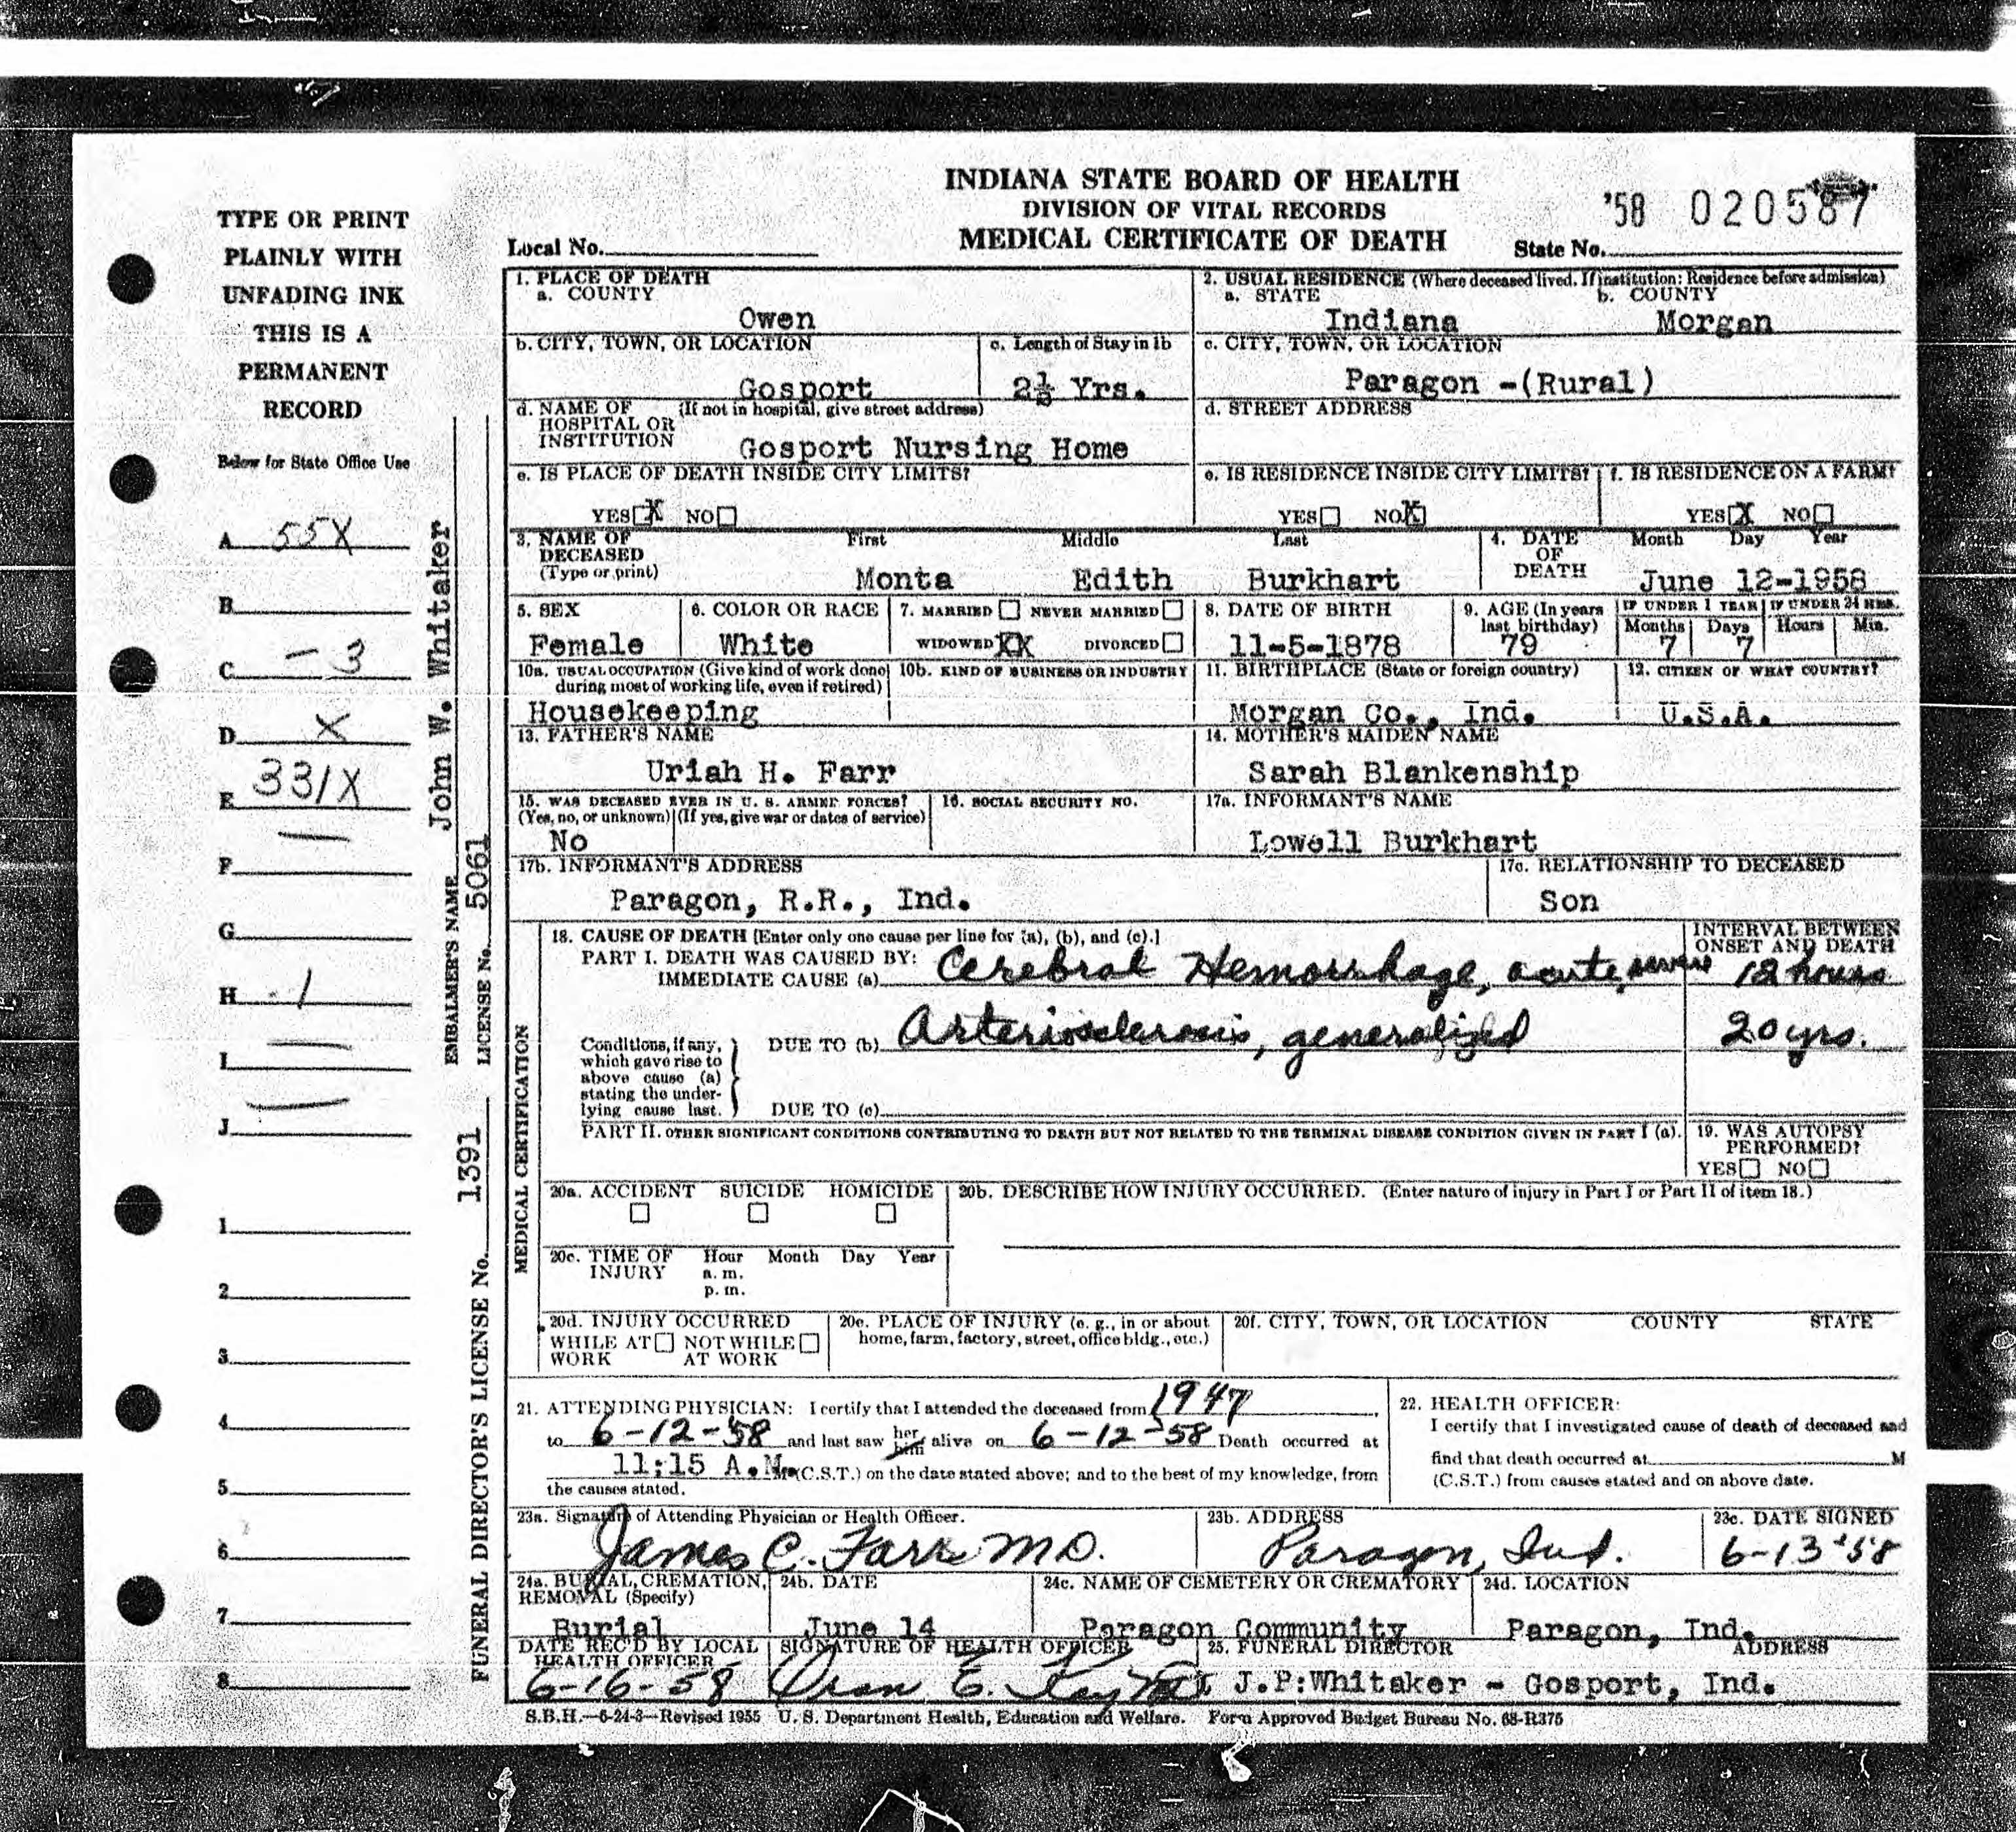 INDIANA STATE BOARD OF HEALTH
DIVISION OF VITAL RECORDS
MEDICAL CERTIFICATE OF DEATH
Local No.
'58 020587
State No.
TYPE OR PRINT
PLAINLY WITH
UNFADING INK
THIS IS A
PERMANENT
RECORD
Below for State Office Use
A 55X
B
C - 3
D X
E 331X
F —
G
H 1
I
J
1
2
3
4
5
6
7
8
EMBALMER'S NAME John W. Whitaker
LICENSE No. 5061
FUNERAL DIRECTOR'S LICENSE No. 1391
1. PLACE OF DEATH
a. COUNTY
Owen
2. USUAL RESIDENCE (Where deceased lived. If institution: Residence before admission)
a. STATE b. COUNTY
Indiana Morgan
b. CITY, TOWN, OR LOCATION
Gosport
c. Length of Stay in 1b
Yrs.
c. CITY, TOWN, OR LOCATION
Paragon -(Rural)
d. NAME OF (If not in hospital, give street address)
HOSPITAL OR
INSTITUTION
Gosport Nursing Home
d. STREET ADDRESS
e. IS PLACE OF DEATH INSIDE CITY LIMITS?
YES X NO
e. IS RESIDENCE INSIDE CITY LIMITS?
YES NO X
f. IS RESIDENCE ON A FARM?
YES X NO
3. NAME OF DECEASED
(Type or print)
First Middle Last
Monta Edith Burkhart
4. DATE OF DEATH
Month Day Year
June 12-1958
5. SEX
Female
6. COLOR OR RACE
White
7. MARRIED NEVER MARRIED
WIDOWED XX DIVORCED
8. DATE OF BIRTH
11-5-1878
9. AGE (In years last birthday)
79
IF UNDER 1 YEAR IF UNDER 24 HRS.
Months Days Hours Min.
7 7
10a. USUAL OCCUPATION (Give kind of work done
during most of working life, even if retired)
Housekeeping
10b. KIND OF BUSINESS OR INDUSTRY
11. BIRTHPLACE (State or foreign country)
Morgan Co., Ind.
12. CITIZEN OF WHAT COUNTRY?
U.S.A.
13. FATHER'S NAME
Uriah H. Farr
14. MOTHER'S MAIDEN NAME
Sarah Blankenship
15. WAS DECEASED EVER IN U. S. ARMED FORCES?
(Yes, no, or unknown) (If yes, give war or dates of service)
No
16. SOCIAL SECURITY NO.
17a. INFORMANT'S NAME
Lowell Burkhart
17b. INFORMANT'S ADDRESS
Paragon, R.R., Ind.
17c. RELATIONSHIP TO DECEASED
Son
MEDICAL CERTIFICATION
18. CAUSE OF DEATH [Enter only one cause per line for (a), (b), and (c).]
INTERVAL BETWEEN
ONSET AND DEATH
PART I. DEATH WAS CAUSED BY:
IMMEDIATE CAUSE (a) Cerebral Hemorrhage, acute, severe 12 hours
Conditions, if any,
which gave rise to
above cause (a)
stating the under-
lying cause last.
DUE TO (b) Arteriosclerosis, generalized 20 yrs.
DUE TO (c)
PART II. OTHER SIGNIFICANT CONDITIONS CONTRIBUTING TO DEATH BUT NOT RELATED TO THE TERMINAL DISEASE CONDITION GIVEN IN PART I (a).
19. WAS AUTOPSY
PERFORMED?
YES NO
20a. ACCIDENT SUICIDE HOMICIDE
20b. DESCRIBE HOW INJURY OCCURRED. (Enter nature of injury in Part I or Part II of item 18.)
20c. TIME OF INJURY Hour Month Day Year
a. m.
p. m.
20d. INJURY OCCURRED
WHILE AT WORK NOT WHILE AT WORK
20e. PLACE OF INJURY (e. g., in or about
home, farm, factory, street, office bldg., etc.)
20f. CITY, TOWN, OR LOCATION COUNTY STATE
21. ATTENDING PHYSICIAN: I certify that I attended the deceased from 1947
to 6-12-58 and last saw her him alive on 6-12-58 Death occurred at
11:15 A.M. (C.S.T.) on the date stated above; and to the best of my knowledge, from
the causes stated.
22. HEALTH OFFICER:
I certify that I investigated cause of death of deceased and
find that death occurred at M
(C.S.T.) from causes stated and on above date.
23a. Signature of Attending Physician or Health Officer.
James C. Farr MD.
23b. ADDRESS
Paragon, Ind.
23c. DATE SIGNED
6-13-58
24a. BURIAL, CREMATION,
REMOVAL (Specify)
Burial
24b. DATE
June 14
24c. NAME OF CEMETERY OR CREMATORY
Paragon Community
24d. LOCATION
Paragon, Ind.
DATE REC'D BY LOCAL
HEALTH OFFICER
6-16-58
SIGNATURE OF HEALTH OFFICER
E.
25. FUNERAL DIRECTOR ADDRESS
J.P.Whitaker - Gosport, Ind.
S.B.H.—6-24-3—Revised 1955 U. S. Department Health, Education and Welfare. Form Approved Budget Bureau No. 68-R375